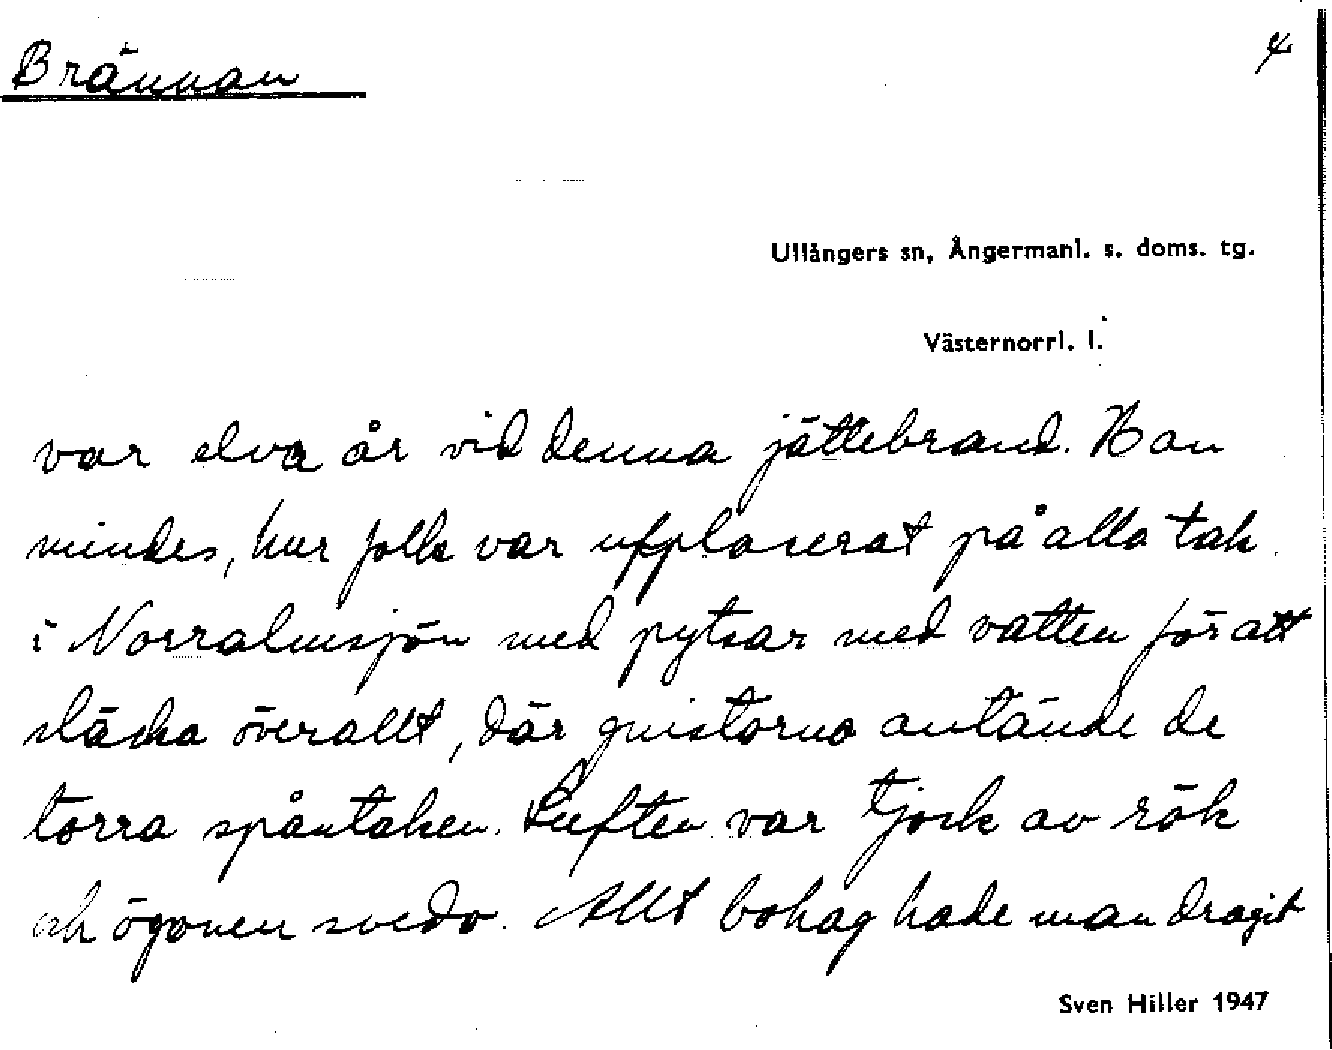 Brännan
4
Ullångers sn, Ångermanl. s. doms. tg.
Västernorrl. l.
var elva år vid denna jättebrand. Han
mindes, hur folk var upplacerat på alla tak
i Norralmsjön med pytsar med vatten för att
släcka överallt, där gnistorna antände de
torra spåntaken. Luften var tjock av rök
och ögonen svedo. Allt bohag hade man dragit
Sven Hiller 1947